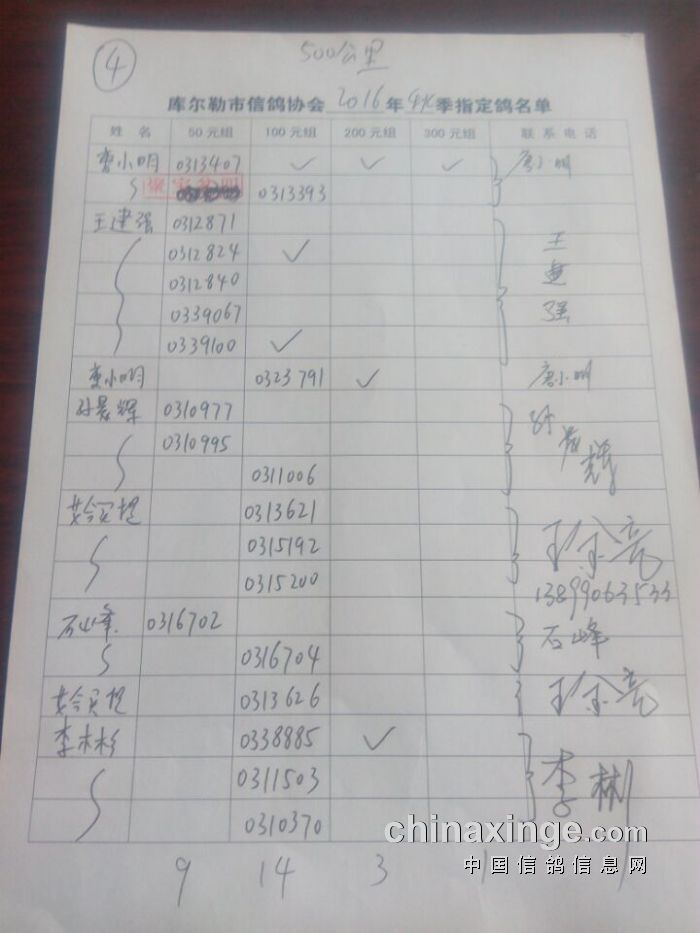 4
500公里
库尔勒市信鸽协会 2016 年 秋 季指定鸽名单
姓 名 50元组 100元组 200元组 300元组 联系电话
唐小明 0313407 ✓ ✓ ✓ 唐小明
0313393
王建强 0312871
0312824 ✓ 王
0312840 建
0339067 强
0339100 ✓
唐小明 0323791 ✓ 唐小明
孙晨辉 0310977
0310995
0311006
0313621
0315192
0315200 13899063533
石峰 0316702 石峰
0316704
0313626
李彬 0338885 ✓
0311503 李彬
0310370
9 14 3 1
chinaxinge.com
中国信鸽信息网